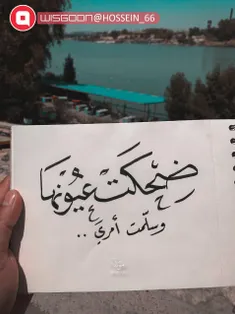 WISGOON@HOSSEIN_66
ضحكت عيونها
وسلّمت أمري ..